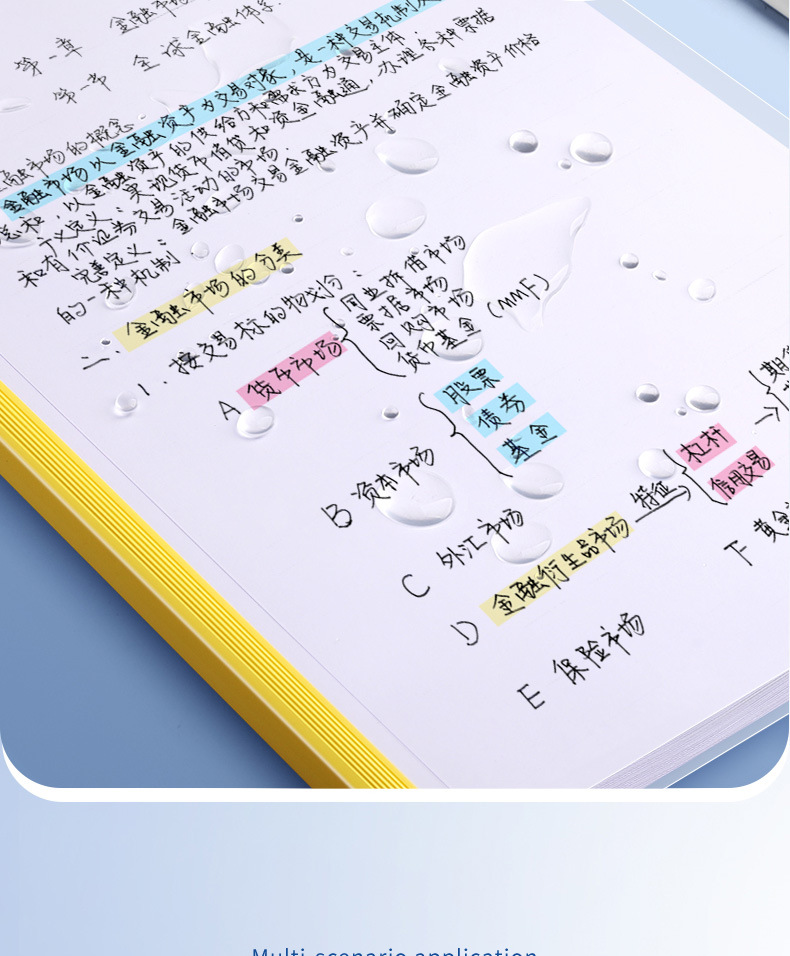 第一章 金融市场
第一节 全球金融体系
金融市场的概念
金融市场以金融资产为交易对象，是一种交易机制及
总和，以金融资产的供给方和需求方为交易主体；
广义定义：实现货币借贷和资金融通，办理各种票据
和有价证券交易活动的市场．
完善定义：金融市场交易金融资产并确定金融资产价格
的一种机制．
二．金融市场的分类
1．按交易标的物划分：
A 货币市场
同业拆借市场
票据市场
回购市场
货币基金（MMF）
B 资本市场
股票
债券
基金
C 外汇市场
D 金融衍生品市场 特征
杠杆
信用交易
E 保险市场
F 黄金
Multi-scenario application